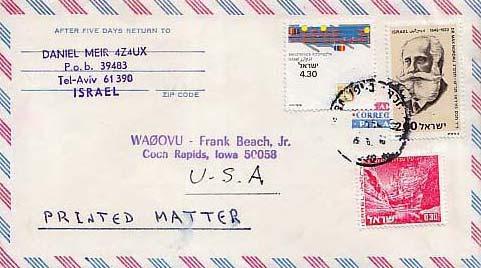 AFTER FIVE DAYS RETURN TO
DANIEL MEIR 4Z4UX
P.o.b. 39483
Tel-Aviv 61390
ISRAEL
ZIP CODE
ישראל
4.30
ISRAEL
2.00 ישראל
CORREO
WAØOVU - Frank Beach, Jr.
Coon Rapids, Iowa 50058
U.S.A
PRINTED MATTER
ISRAEL
ישראל 0.30